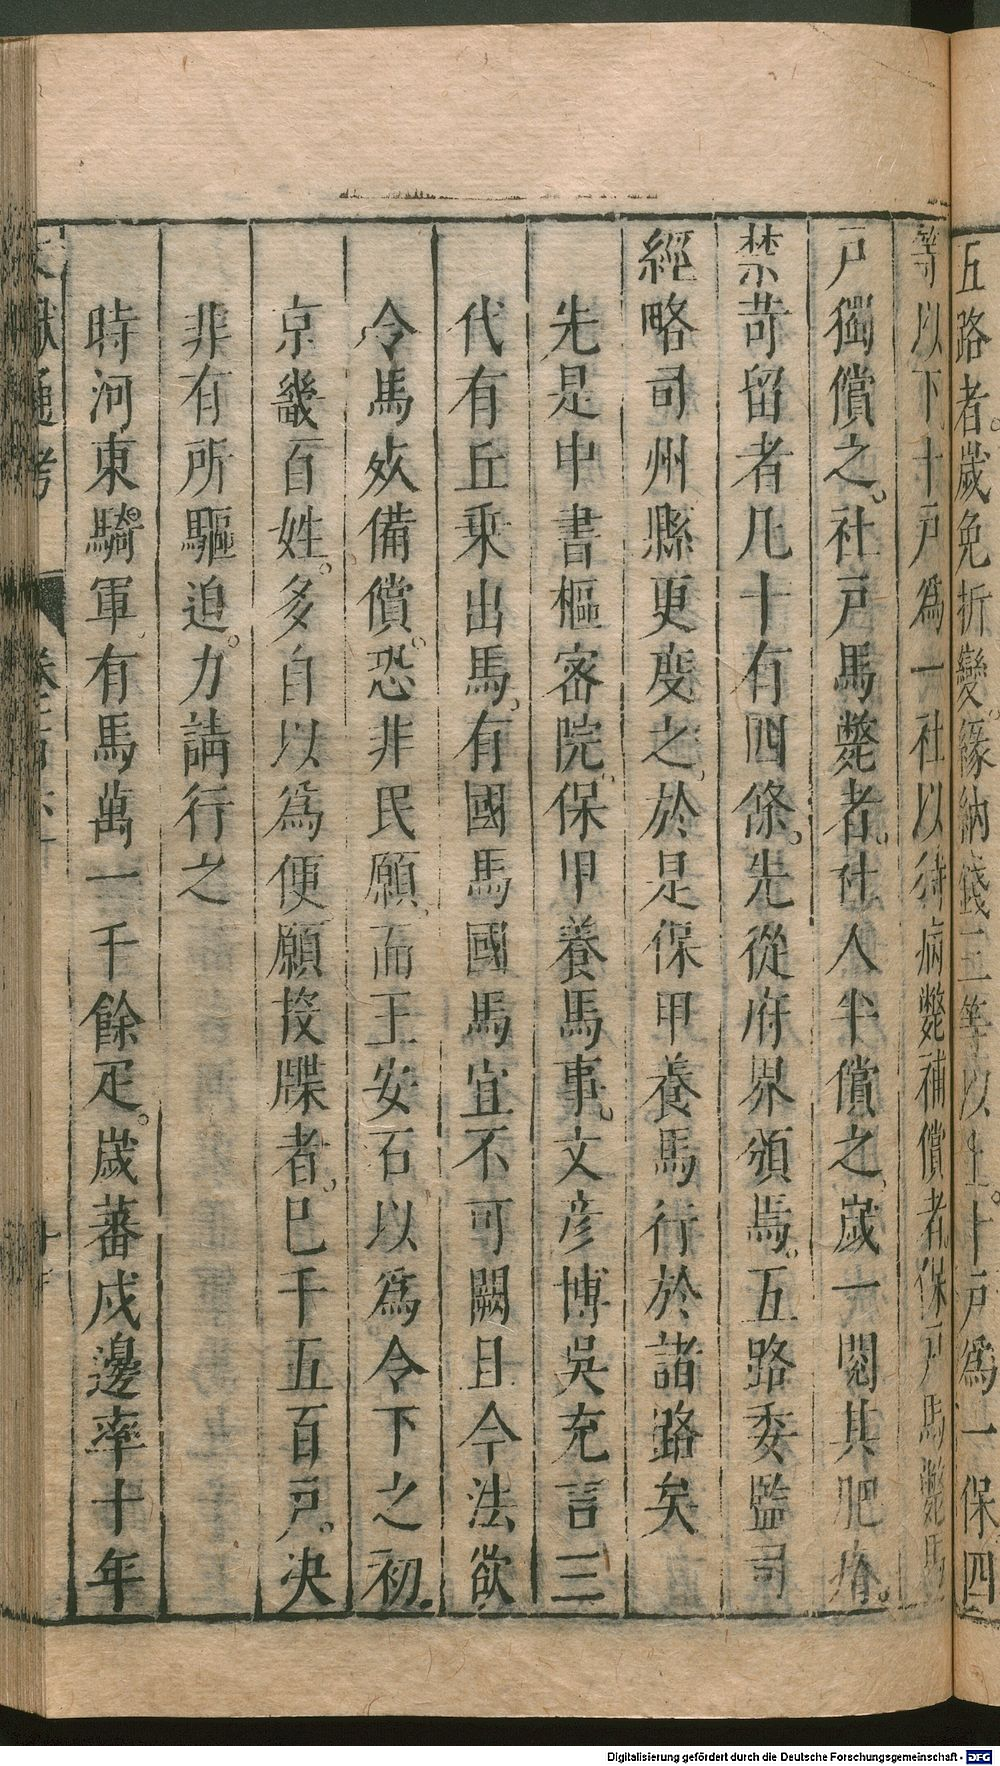 五路者歲免折變緣納錢三等以上十戶爲一保四
等以下十戶爲一社以待病斃補償者保戶馬斃馬
戶獨償之社戶馬斃者社人半償之歲一閱其肥瘠
禁苛留者凡十有四條先從府界頒焉五路委監司
經略司州縣更度之於是保甲養馬行於諸路矣
先是中書樞密院保甲養馬事文彦博吳充言三
代有丘乗出馬有國馬國馬宜不可闕且今法欲
令馬死備償恐非民願而王安石以爲令下之初
京畿百姓多自以爲便願投牒者巳千五百戶决
非有所驅迫力請行之
時河東騎軍有馬萬一千餘疋歲蕃戍邊率十年
文獻通考
Digitalisierung gefördert durch die Deutsche Forschungsgemeinschaft - DFG